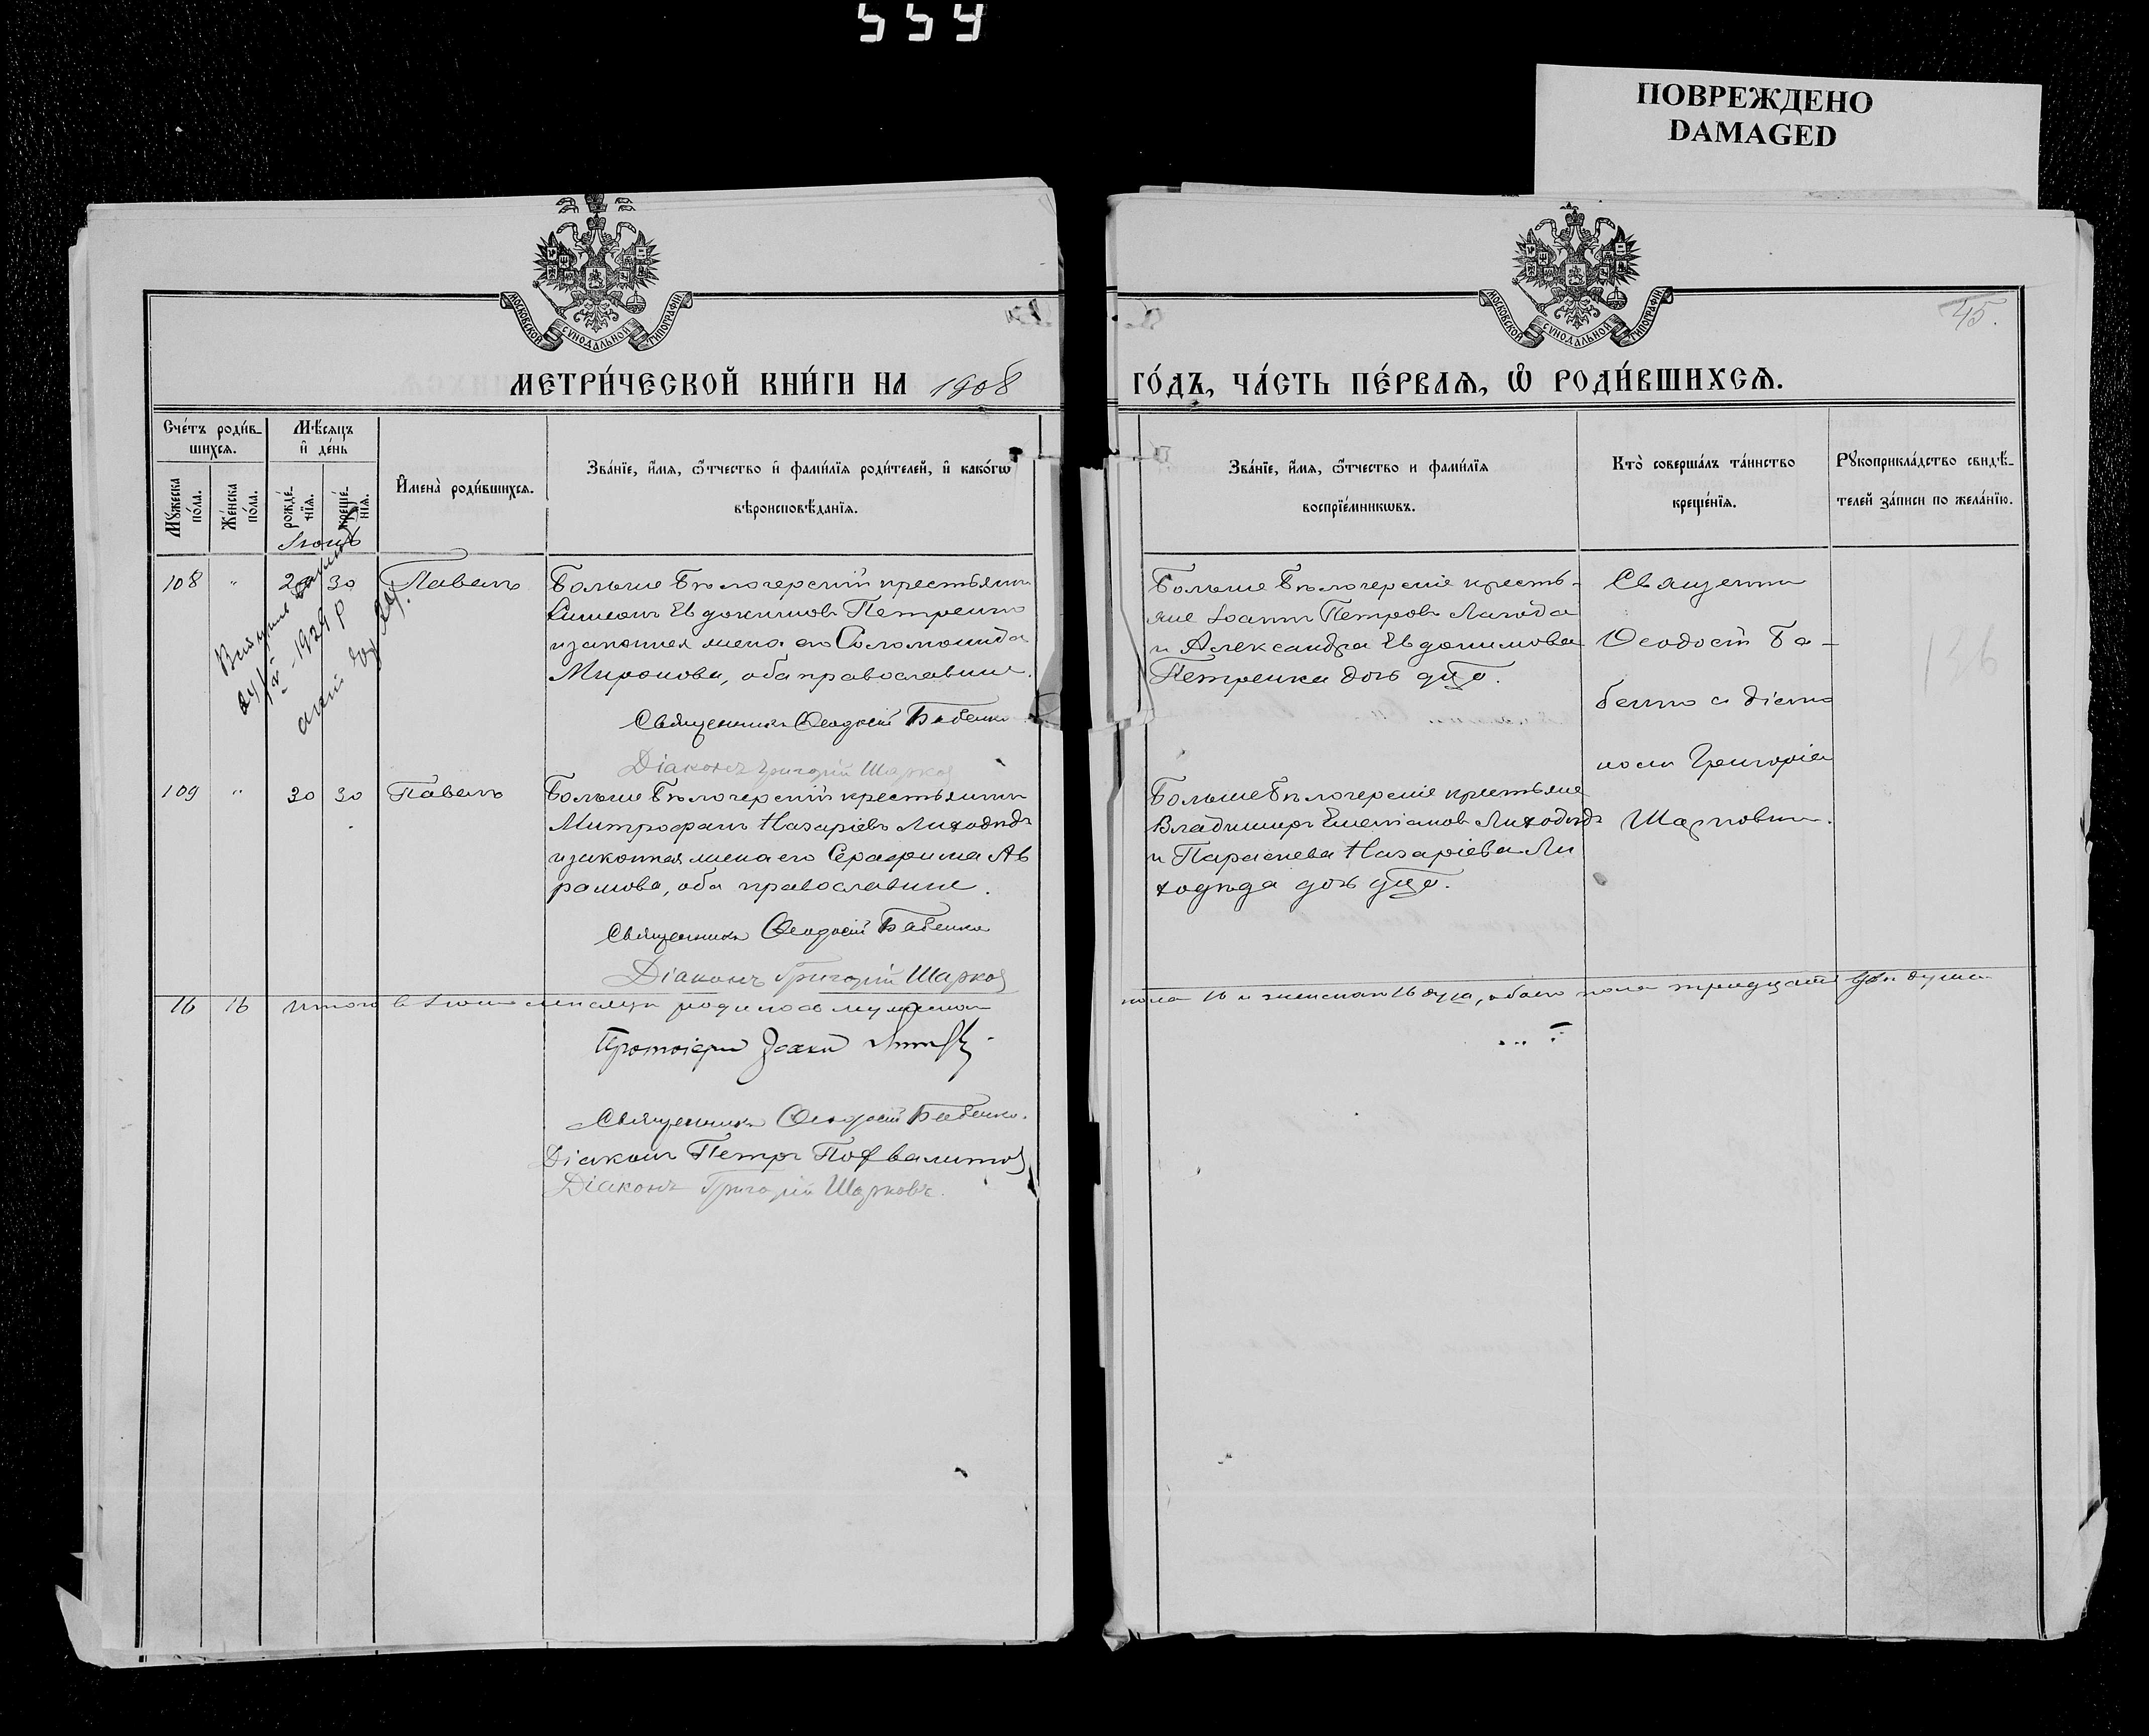 554
ПОВРЕЖДЕНО
DAMAGED
МОСКОВСКОЙ СѴНОДАЛЬНОЙ ТИПОГРАФІИ
МОСКОВСКОЙ СѴНОДАЛЬНОЙ ТИПОГРАФІИ
45.
МЕТРИ́ЧЕСКОЙ КНИ́ГИ НА 1908
ГО́ДЪ, ЧА́СТЬ ПЕ́РВАЯ, Ѿ РОДИ́ВШИХСЯ.
Сче́тъ роди́в-
шихся.
Мѣ́сяцъ
и҆ де́нь
Мꙋ́жеска по́ла.
Же́нска по́ла.
рожде́-
нїя.
креще́-
нїя.
И҆мена̀ роди́вшихся.
Зва́нїе, и҆́мя, ѻ҆́тчество и҆ фами́лїя роди́телей, и҆ како́гѡ
вѣроисповѣ́данїя.
Зва́нїе, и҆́мя, ѻ҆́тчество и фами́лїя
воспрїе́мникѡвъ.
Кто̀ соверша́лъ та́инство
креще́нїя.
Рꙋкоприкла́дство свидѣ́-
телей за́писи по жела́нїю.
Іюнь
108 " 30 Павелъ
Больше Бѣлозерскій крестьянинъ
Симеонъ Евдокимовъ Петренко
и законная жена его Соломонида
Миронова, оба православные.
Священникъ Ѳеодосій Бабенко
Діаконъ Григорій Шарковъ
Больше Бѣлозерскіе кресть-
яне Іоаннъ Петровъ Лагода
и Александра Евдокимова
Петренка дочь
Священни
Ѳеодосій Ба-
бенко с діако
номъ Григоріемъ
Шарковымъ.
1929 р
109 " 30 30 Павелъ
Больше Бѣлозерскій крестьянинъ
Митрофанъ Назаріевъ Лиходѣдъ
и законная жена его Серафима Ав
рамова, оба православные.
Священникъ Ѳеодосій Бабенко
Діаконъ Григорій Шарковъ
Больше Бѣлозерскіе крестьяне
Владимиръ Емеліановъ Лиходѣдъ
и Параскева Назаріева Ли
ходѣда дочь
136
16 16 Итого в Іюнѣ мѣсяцѣ родилось мужеска
пола 16 и женска 16 душ, обоего пола тридцать двѣ души
Протоіерей
Священникъ Ѳеодосій Бабенко.
Діаконъ Петръ Похвалитовъ
Діаконъ Григорій Шарковъ.